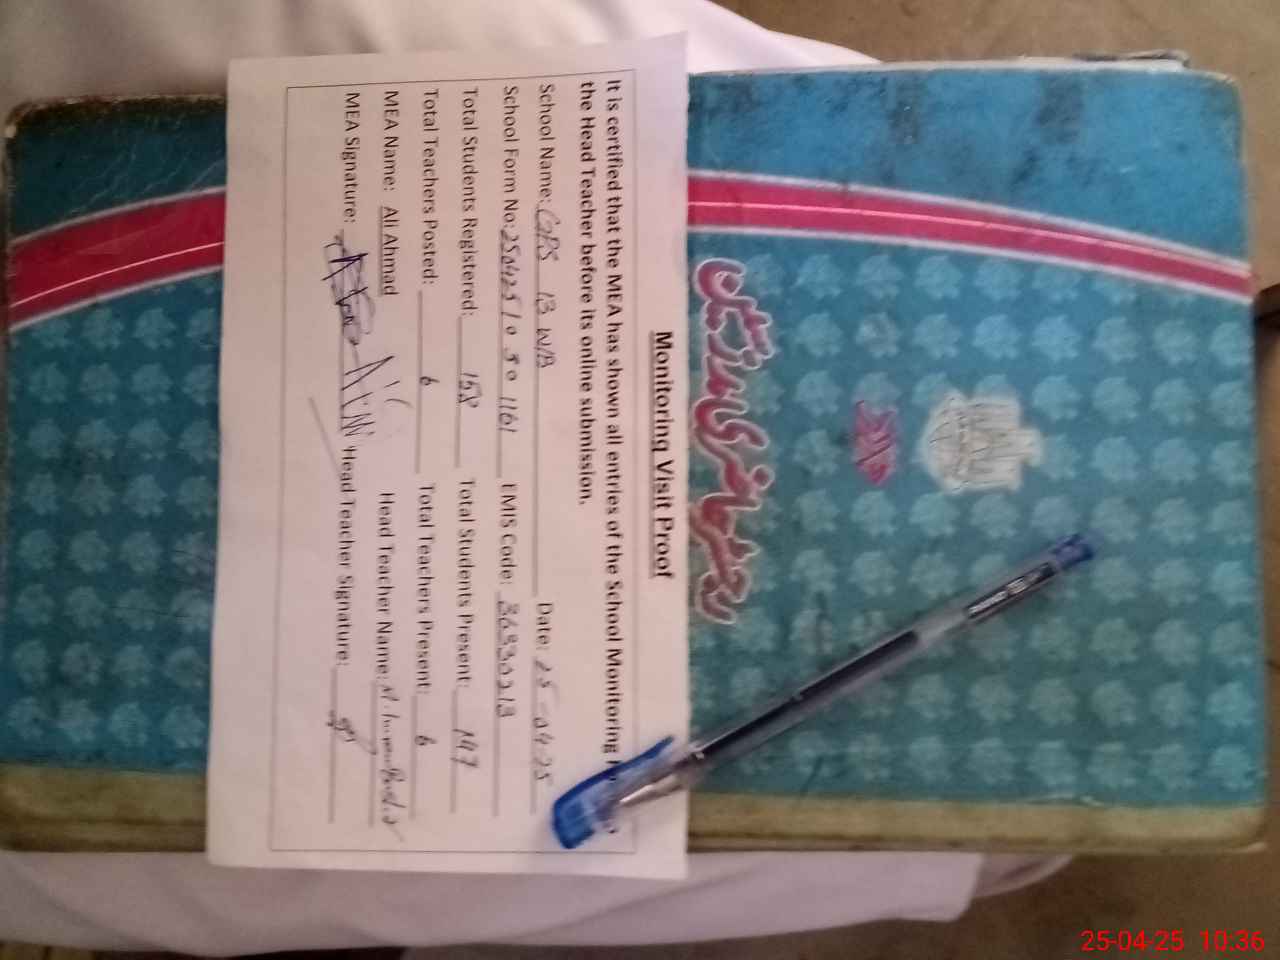 Monitoring Visit Proof
It is certified that the MEA has shown all entries of the School Monitoring
the Head Teacher before its online submission.
School Name: GPS 13 W/B Date: 25-04-25
School Form No: 250425 1161 EMIS Code: 36330213
Total Students Registered: 158 Total Students Present: 147
Total Teachers Posted: 6 Total Teachers Present: 6
MEA Name: Ali Ahmad Head Teacher Name: M.
MEA Signature: Head Teacher Signature:
رجسٹر حاضری مدرسین
25-04-25 10:36